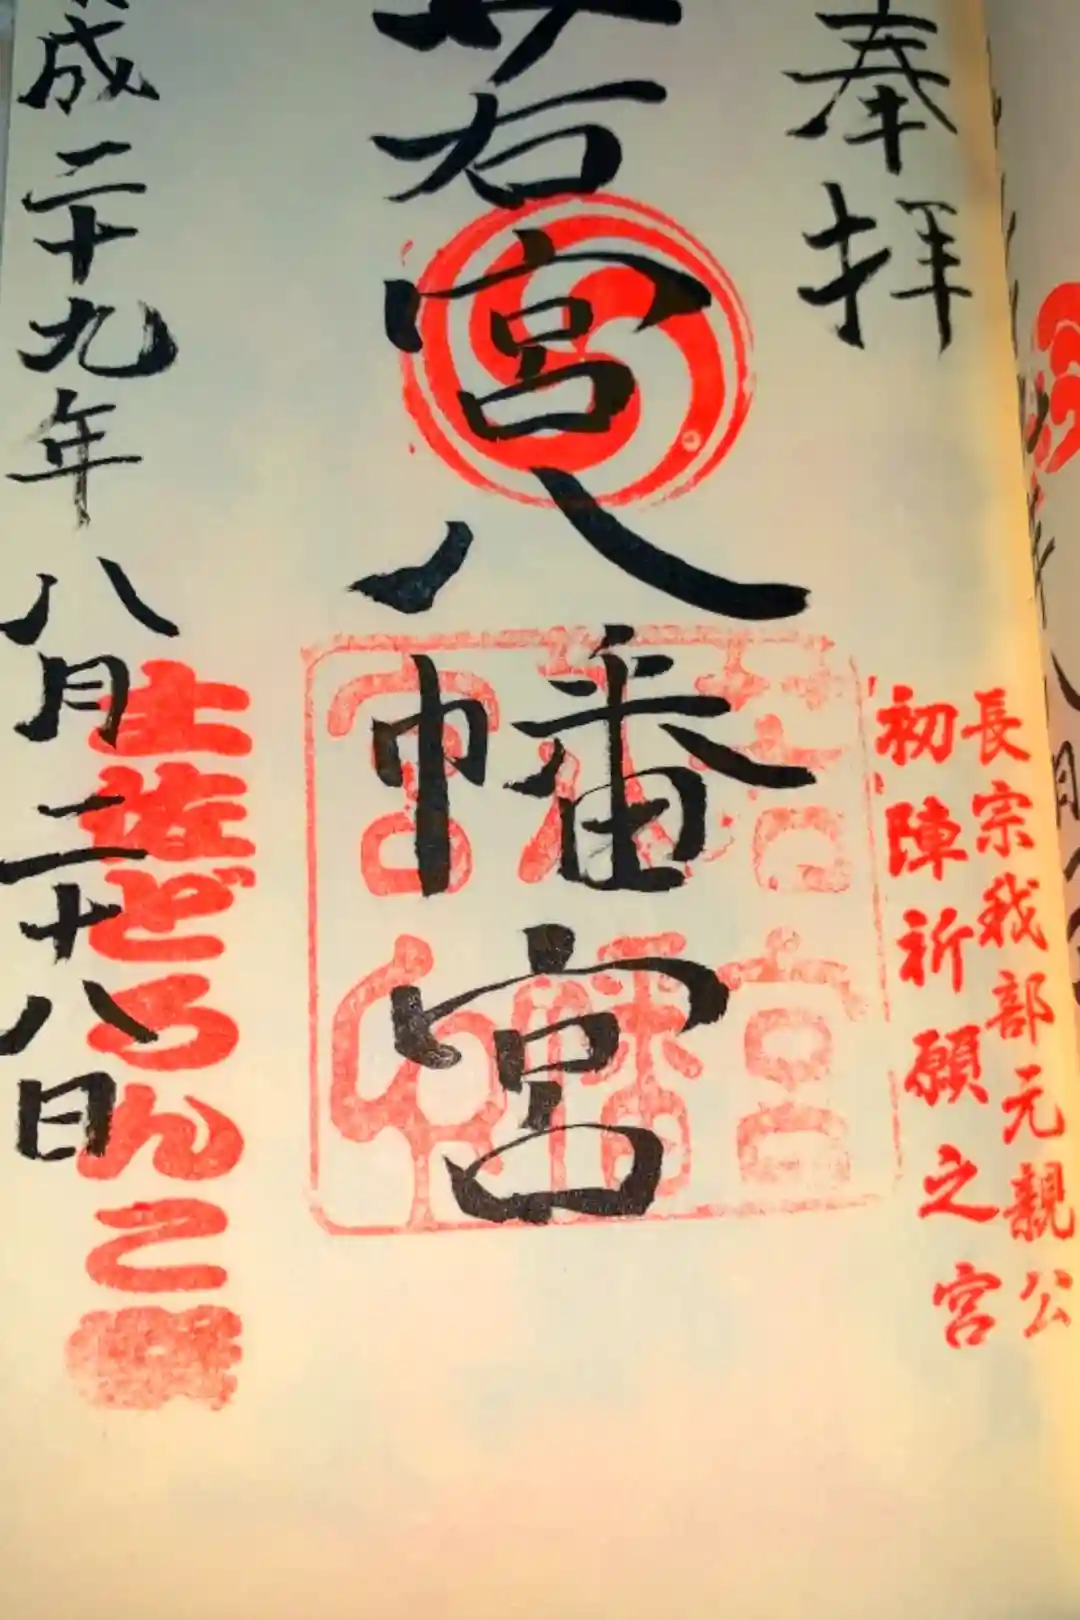 奉拝
長宗我部元親公
初陣祈願之宮
若宮八幡宮
若宮
八幡宮
土佐どろんこ祭
成二十九年八月二十八日